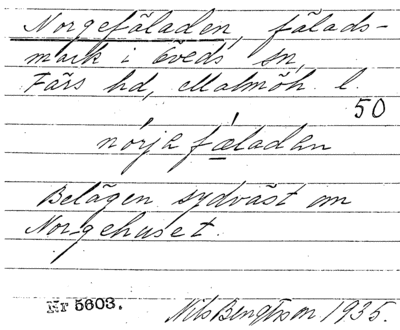 Norgefäladen, fälads-
mark i Öveds sn,
Färs hd, Malmöh. l.
50
nórja fǽladan
Belägen sydväst om
Norgehuset.
Nr 5603. Nils Bengtsson 1935.